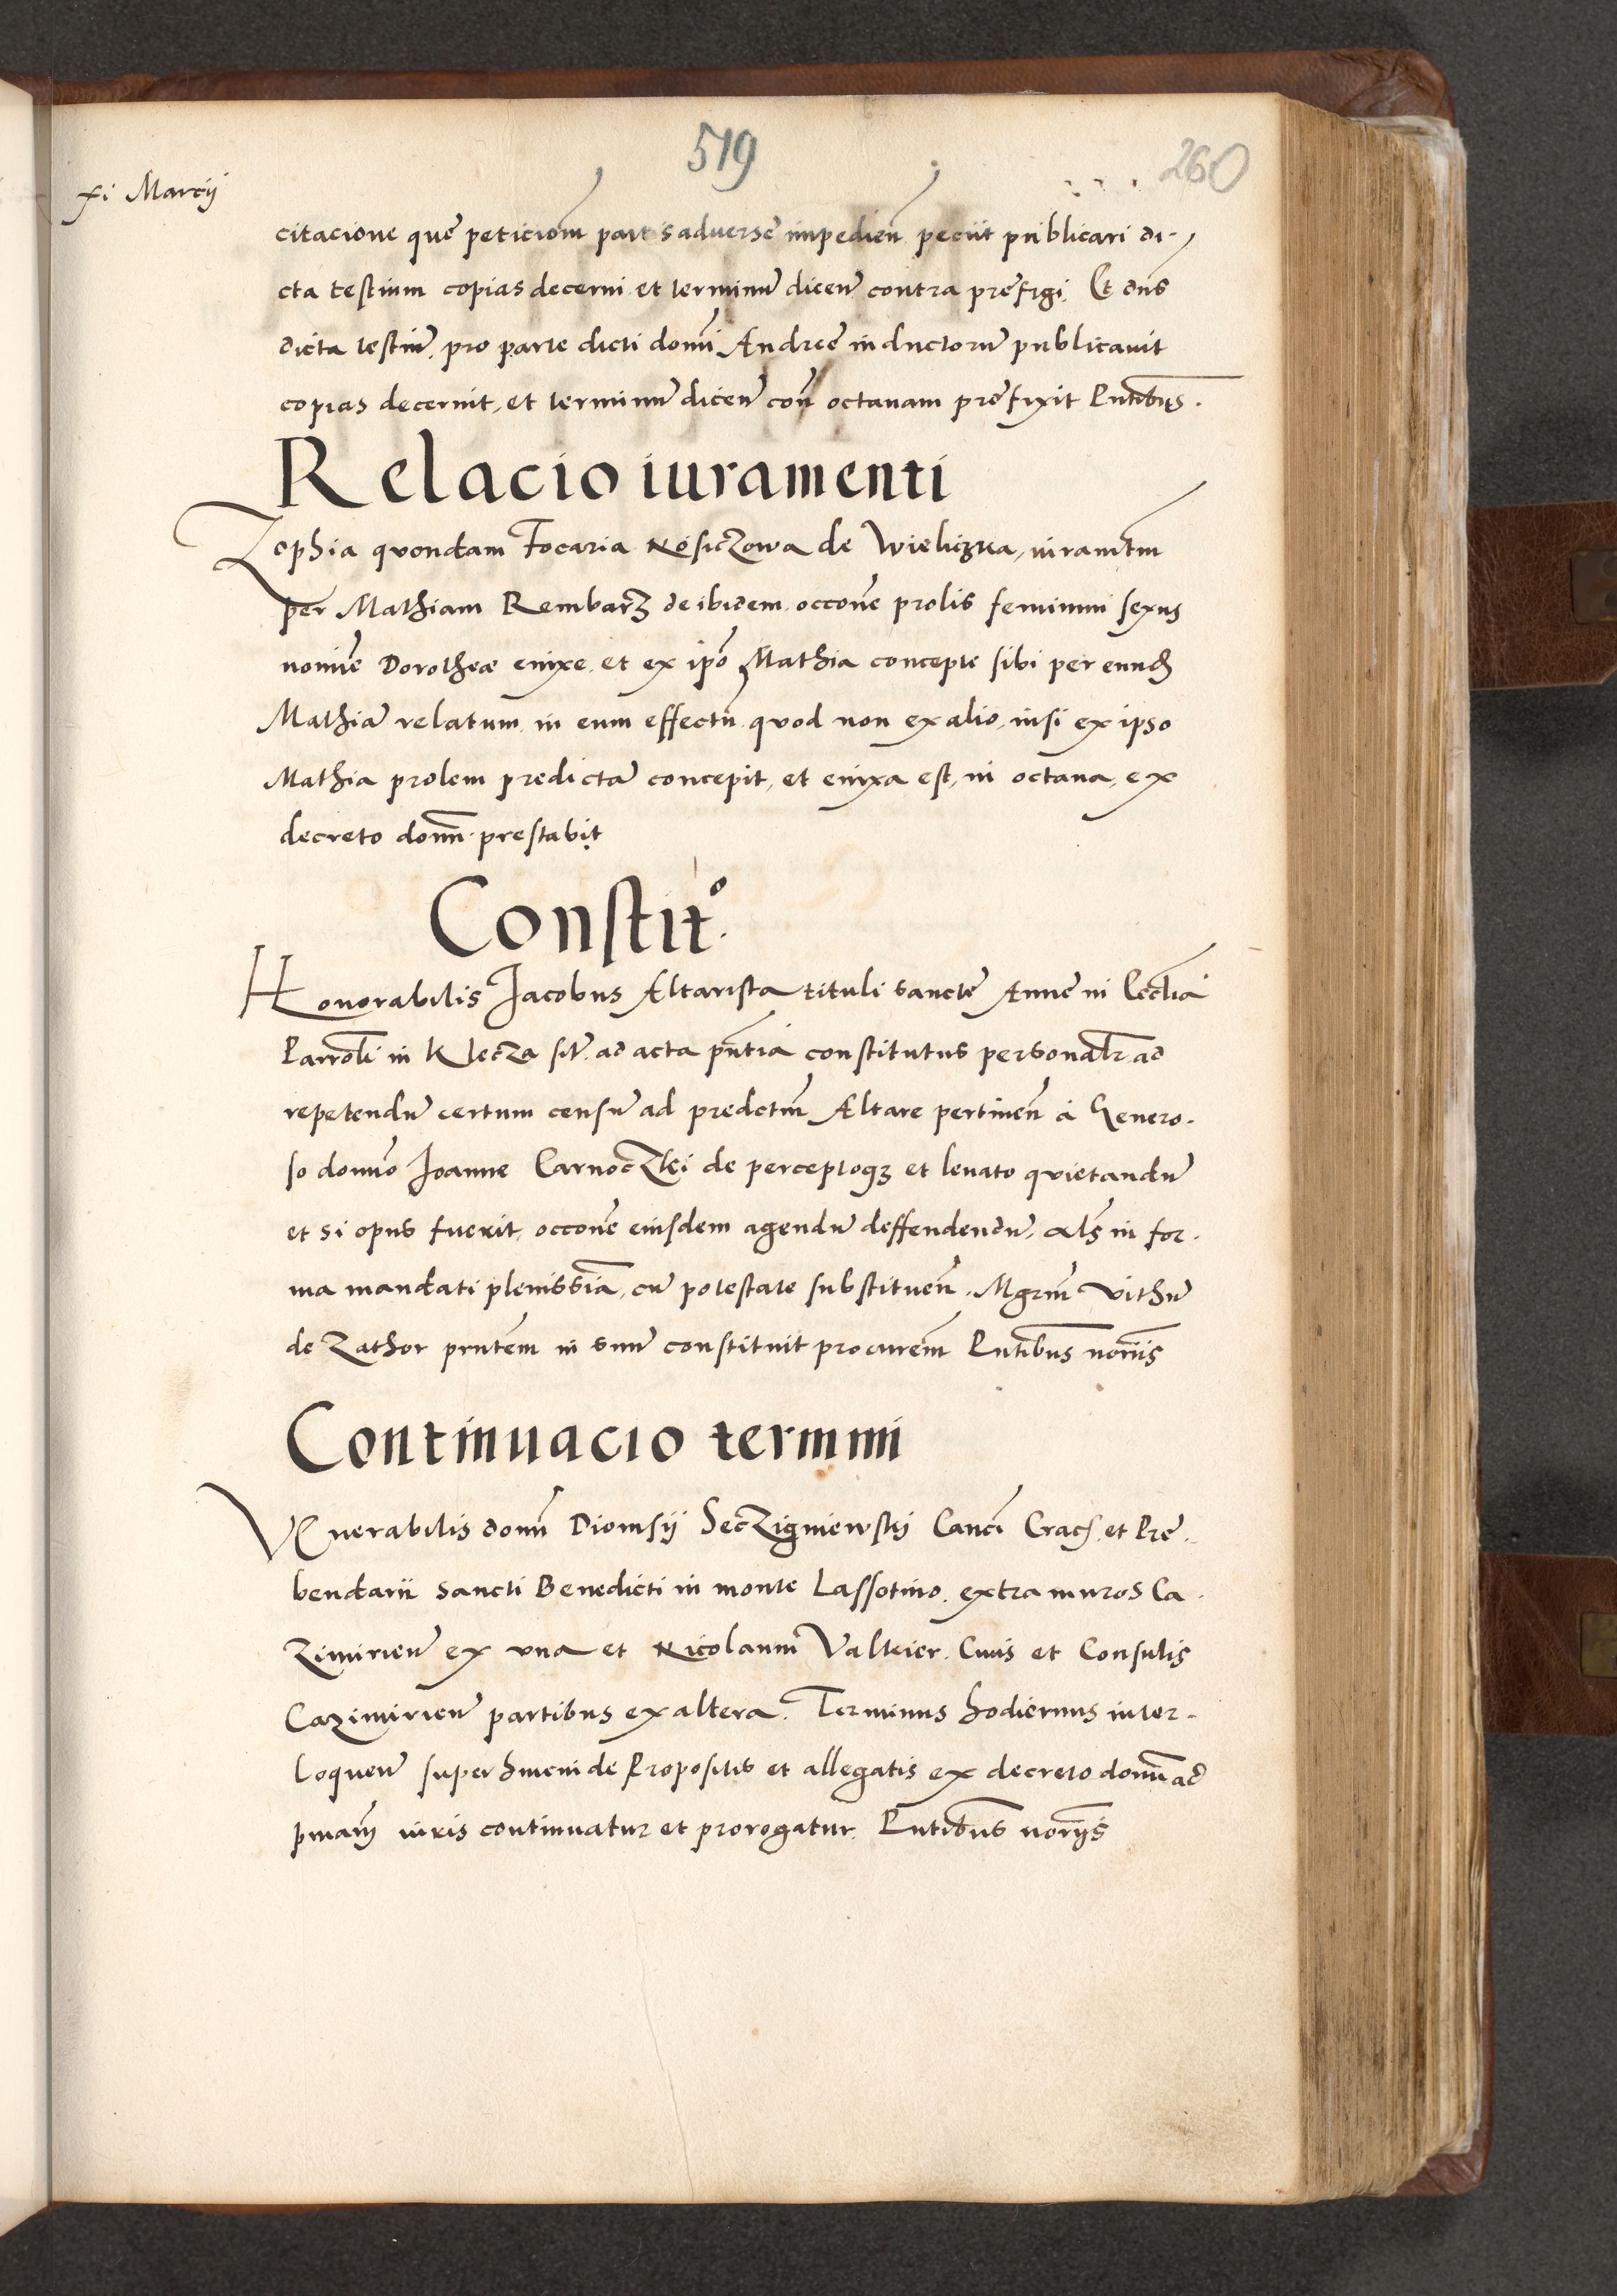 519
260
xi Marcii
citacione que peticiom̄ partis adverse impedien̄ peciit publicari di-
cta testium copias decerni et terminū dicen̄ contra prefigi. Et dn̄s
dicta testiū pro parte dicti domī Andree inductorū publicavit
copias decernit, et terminū dicen̄ con̄ octavam prefixit Pn̄tibus.
Relacio iuramenti
Zophia quondam Focaria de Wieliczka, iuramtm
per Mathiam Rembarz de ibidem occone prolis feminini sexus
nomine Dorotheæ enixe et ex ipo Mathia concepte sibi per eund
Mathiā relatum in eum effectū quod non ex alio, nisi ex ipso
Mathia prolem predictā concepit, et enixa est, in octava, ex
decreto domī prestabit
Constito.
Honorabilis Jacobus Altarista tituli sancte Anne in Eccl̄ia
Parroli in Klecza sit̄ ad acta pn̄tia constitutus personalr ad
repetendū certum censū ad predctm̄ Altare pertinen̄ à Genero-
so domno Joanne Carnoczki de perceptoqz et levato quietandū
et si opus fuerit, occone eiusdem agendū deffendendū, als in for-
ma mandati plenissīa, cū potestate substituen̄. Mgrm̄ Vithū
de Zathor pn̄tem in suū constituit procurem̄ Pn̄tibus noriis
Continuacio termini
Venerabilis domī Dionisii Seczigniewskij Canci Crac et Pre-
bendarii sancti Benedicti in monte Lassotino extra muros Ca-
zimirien̄ ex una et Nicolaum Valteier Civis et Consulis
Cazimirien̄ partibus ex altera. Terminus hodiernus inter-
loquen̄ super hincinde Propositis et allegatis ex decreto domī ad
pmam̄ iuris continuatur et prorogatur. Pn̄tibus noriis